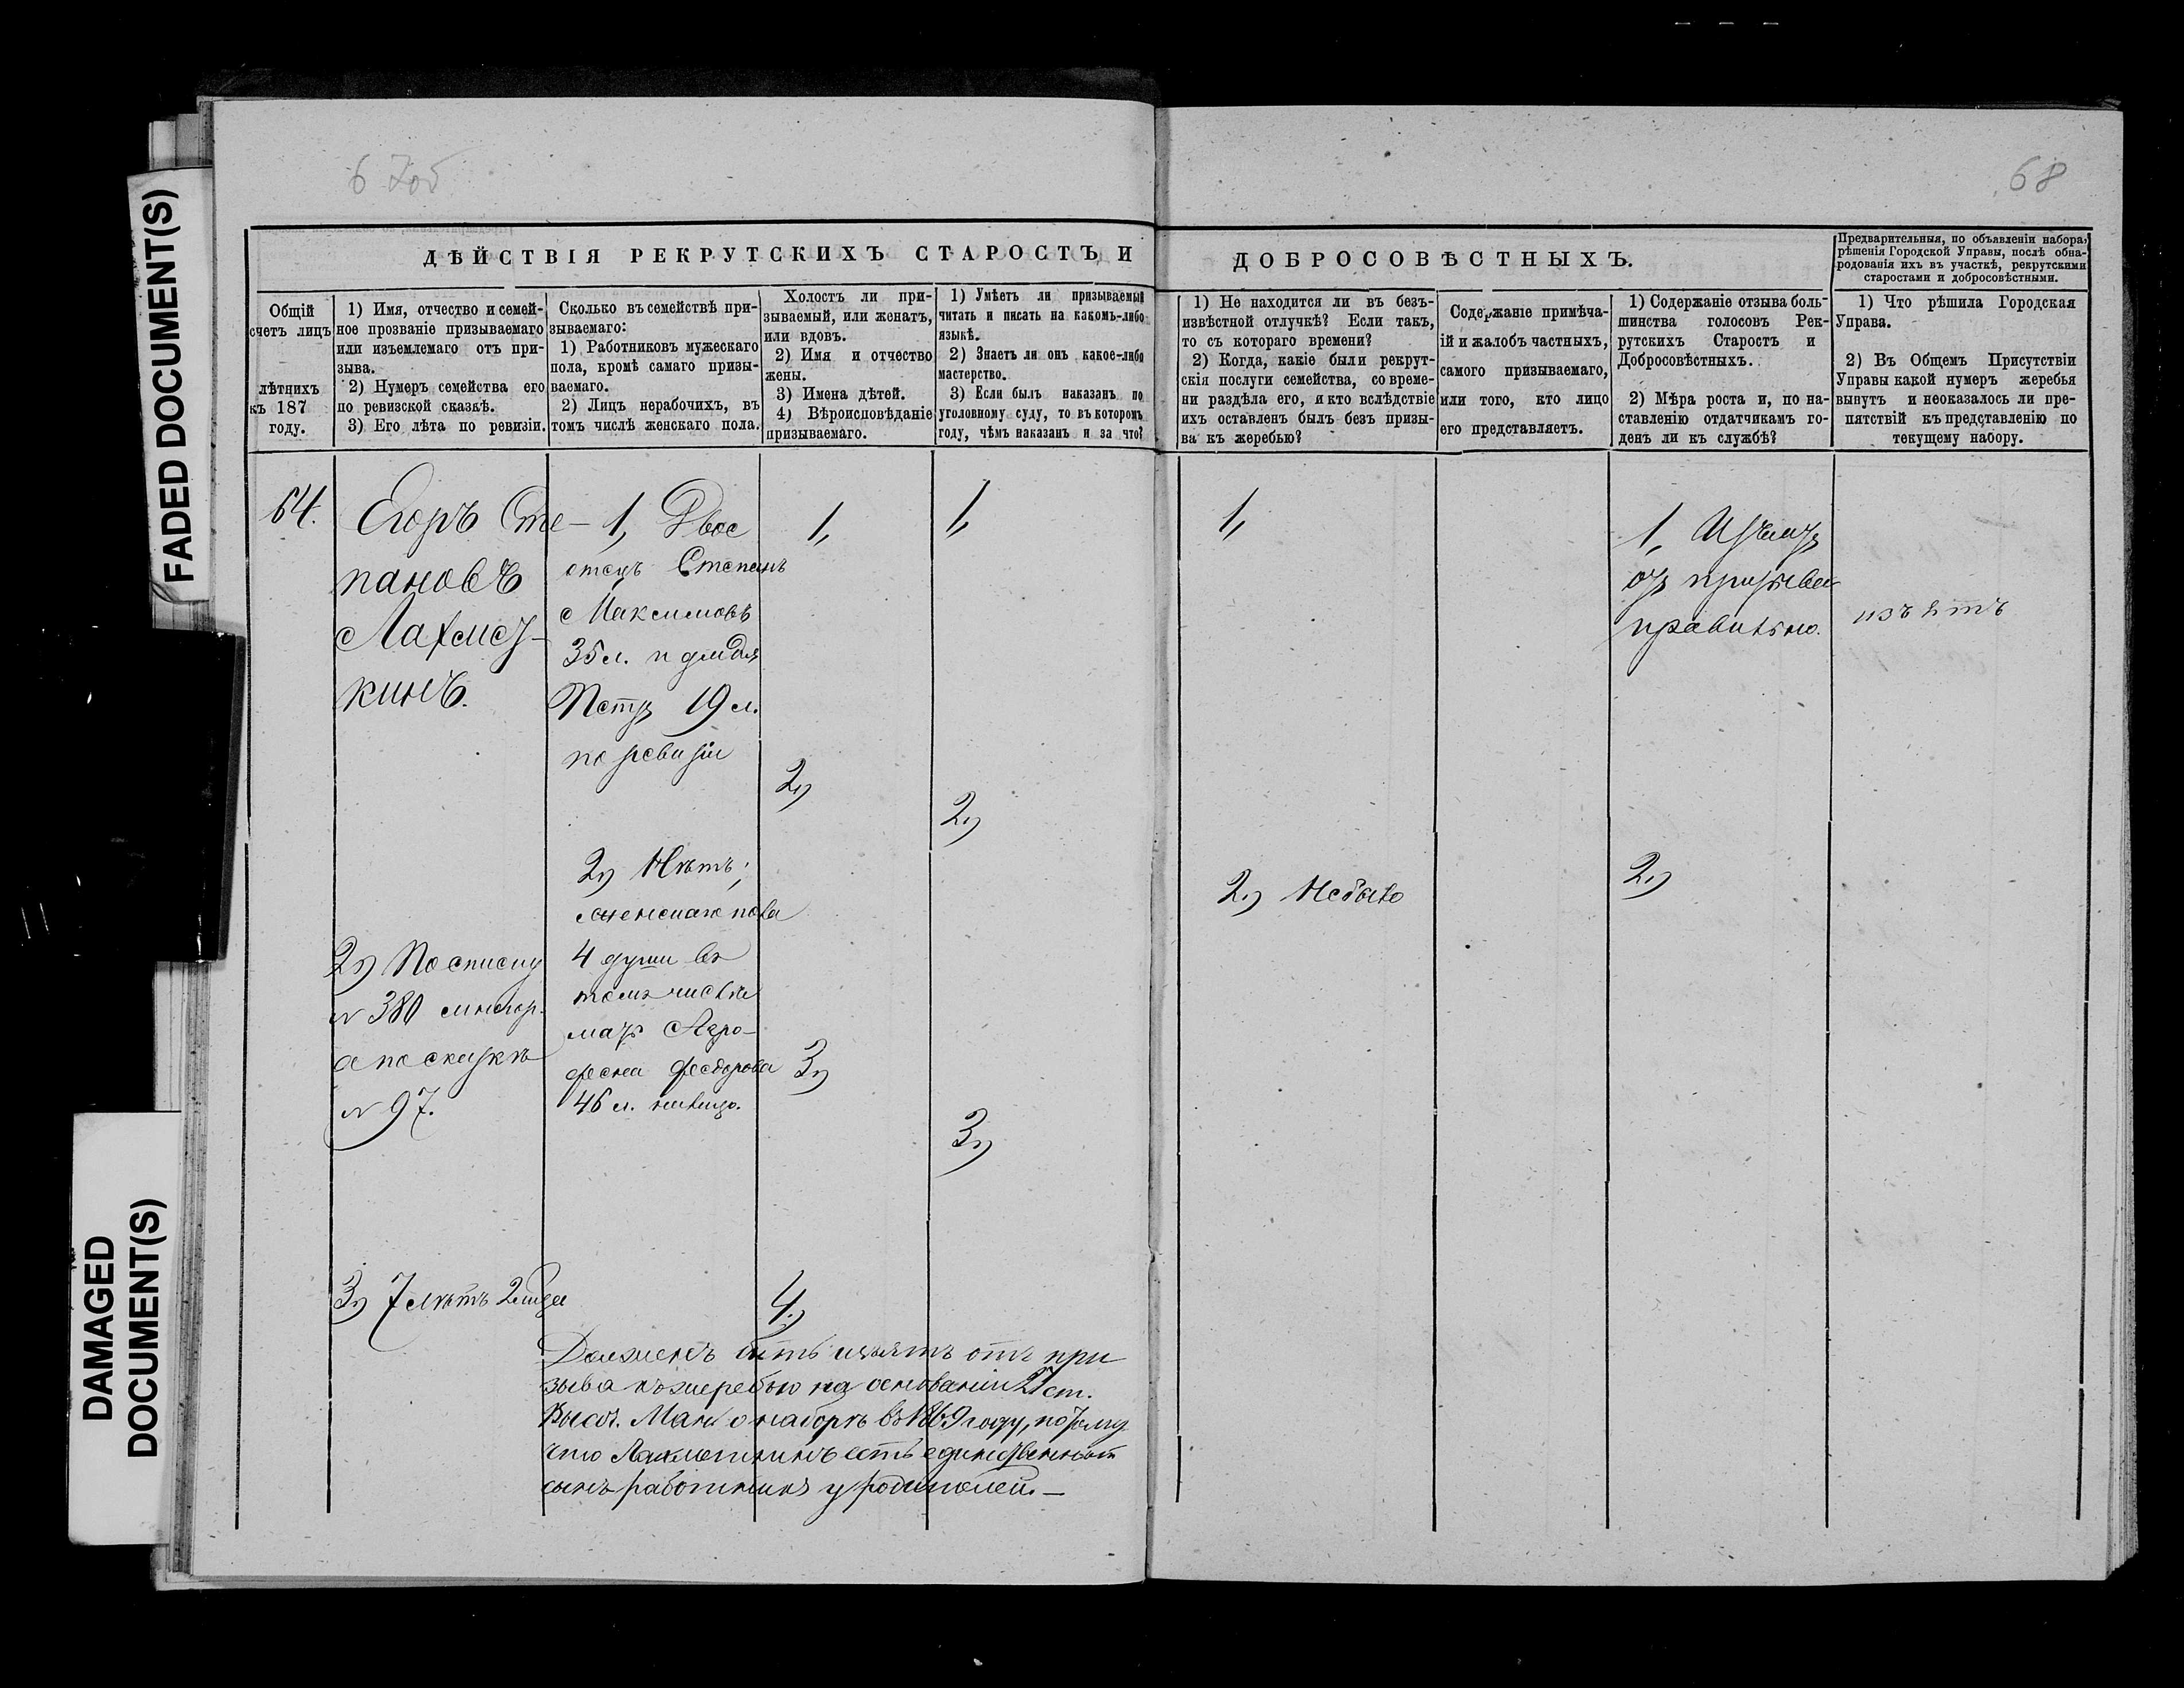 67 об
68
FADED DOCUMENT(S)
DAMAGED
DOCUMENT(S)
ДѢЙСТВІЯ РЕКРУТСКИХЪ СТАРОСТЪ И
ДОБРОСОВѢСТНЫХЪ.
Предварительныя, по объявленіи набора,
рѣшенія Городской Управы, послѣ обна-
родованія ихъ въ участкѣ, рекрутскими
старостами и добросовѣстными.
Общій
счетъ лицъ
лѣтнихъ
къ 187
году.
1) Имя, отчество и семей-
ное прозваніе призываемаго
или изъемлемаго отъ при-
зыва.
2) Нумеръ семейства его
по ревизской сказкѣ.
3) Его лѣта по ревизіи.
Сколько въ семействѣ при-
зываемаго:
1) Работниковъ мужескаго
пола, кромѣ самаго призы-
ваемаго.
2) Лицъ нерабочихъ, въ
томъ числѣ женскаго пола.
Холостъ ли при-
зываемый, или женатъ,
или вдовъ.
2) Имя и отчество
жены.
3) Имена дѣтей.
4) Вѣроисповѣданіе
призываемаго.
1) Умѣетъ ли призываемый
читать и писать на какомъ-либо
языкѣ.
2) Знаетъ ли онъ какое-либо
мастерство.
3) Если былъ наказанъ по
уголовному суду, то въ которомъ
году, чѣмъ наказанъ и за что?
1) Не находится ли въ безъ-
извѣстной отлучкѣ? Если такъ,
то съ котораго времени?
2) Когда, какіе были рекрут-
скія послуги семейства, со време-
ни раздѣла его, и кто вслѣдствіе
ихъ оставленъ былъ безъ призы-
ва къ жеребью?
Содержаніе примѣча-
ій и жалобъ частныхъ,
самого призываемаго,
или того, кто лицо
его представляетъ.
1) Содержаніе отзыва боль-
шинства голосовъ Рек-
рутскихъ Старостъ и
Добросовѣстныхъ.
2) Мѣра роста и, по на-
ставленію отдатчикамъ го-
денъ ли къ службѣ?
1) Что рѣшила Городская
Управа.
2) Въ Общемъ Присутствіи
Управы какой нумеръ жеребья
вынутъ и неоказалось ли пре-
пятствій къ представленію по
текущему набору.
64.
Егоръ Сте-
пановъ
Лахмот-
кинъ.
2) По списку
№ 380
а по сказкѣ
№ 97.
3) 7 лѣтъ 2
1, Двое
отецъ Степанъ
Максимовъ
35 л. и дядя
Петръ 19 л.
по ревизіи
2) Нѣтъ;
женскаго пола
4 души въ
томъ числѣ
мать Агро-
фена Федорова
46 л.
1,
2)
3)
4.)
1,
2)
3)
Долженъ быть изъятъ отъ при
зыва къ жеребью на основаніи 27 ст.
Высоч. Ман. о наборѣ въ 1869 году, потому
что Лахмоткинъ есть единственный
сынъ работникъ у родителей.—
1,
2.) Небыло
1, Изъятъ
отъ призыва
правильно.
2.)
изъятъ